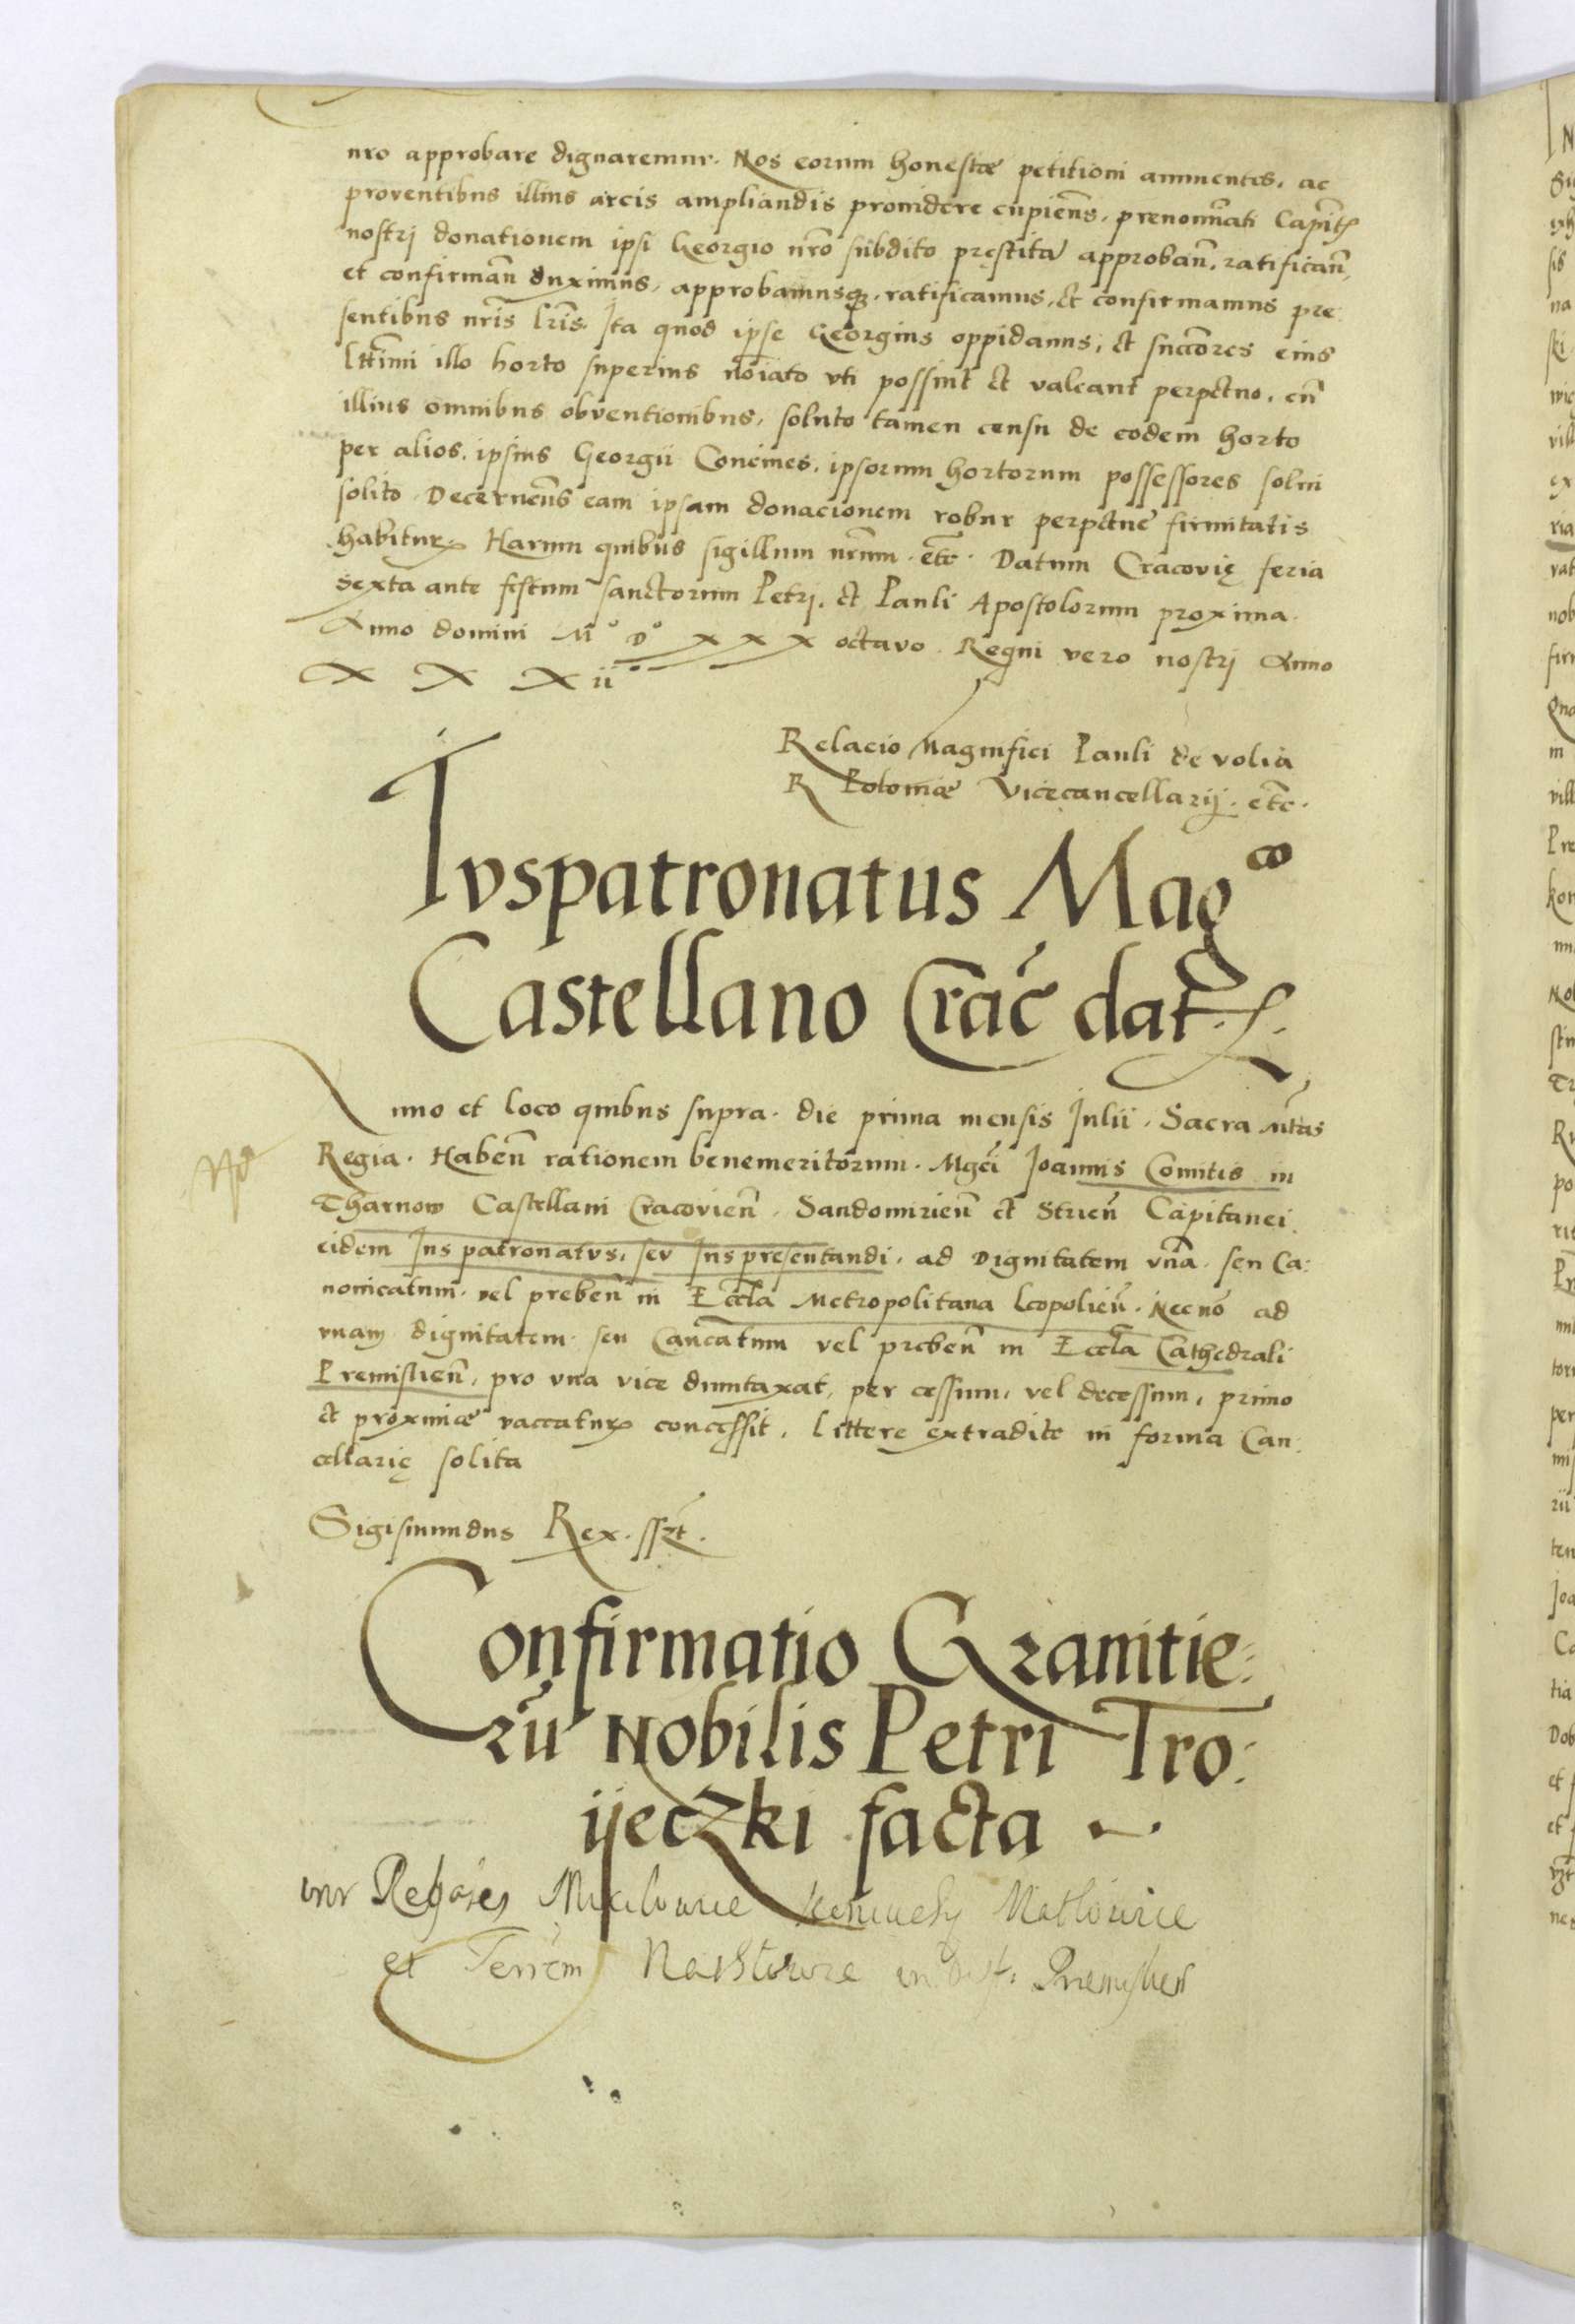 nro approbare dignaremur. Nos eorum honestæ petitioni annuentes, ac
proventibus illius arcis ampliandis providere cupiens, prenomnati Capit
nostrj donationem ipsi Georgio nro subdito prestita approban, ratifican,
et confirman duximus, approbamusq, ratificamus, et confirmamus pre:
sentibus nris lris Ita quod ipse Georgius oppidanus, et succores eius
lttimi illo horto superius noiato vti possint et valeant perpetuo, cu
illius omnibus obventionibus, soluto tamen censu de eodem horto
per alios, ipsius Georgii Concives, ipsorum hortorum possessores solui
solito. Decernens eam ipsam donacionem robur perpetue firmitatis
habitur. Harum quibus sigillum nrum. etc. Datum Cracovię feria
sexta ante festum sanctorum Petrj, et Pauli Apostolorum proxima.
Anno domini Mº Dº XXX octavo. Regni vero nostrj Anno
XXXii
Relacio Magnifici Pauli de volia
R Poloniæ Vicecancellarij. etc.
Ivspatronatus Mag co
Castellano Crac dat.
Anno et loco quibus supra. die prima mensis Julii. Sacra Mtas
Regia. Haben rationem benemeritorum. Mgci Joannis Comitis in
Tharnow Castellani Cracovien. Sandomirien et Strien Capitanei.
eidem Ius patronatvs, sev Ius presentandi, ad Dignitatem vna. seu Ca:
nonicatum. vel preben in Eccla Metropolitana Leopolien. Necno ad
vnam dignitatem seu Cancatum vel preben in Eccla Cathedrali
Premislien, pro vna vice dumtaxat, per cessum, vel decessum, primo
et proximæ vaccatur concessit. Littere extradite in forma Can:
cellarię solita
Sigismundus Rex. sszt.
Confirmatio Granitie:
ru Nobilis Petri Tro:
ijeczki facta
et Terrem in dist. Premislien